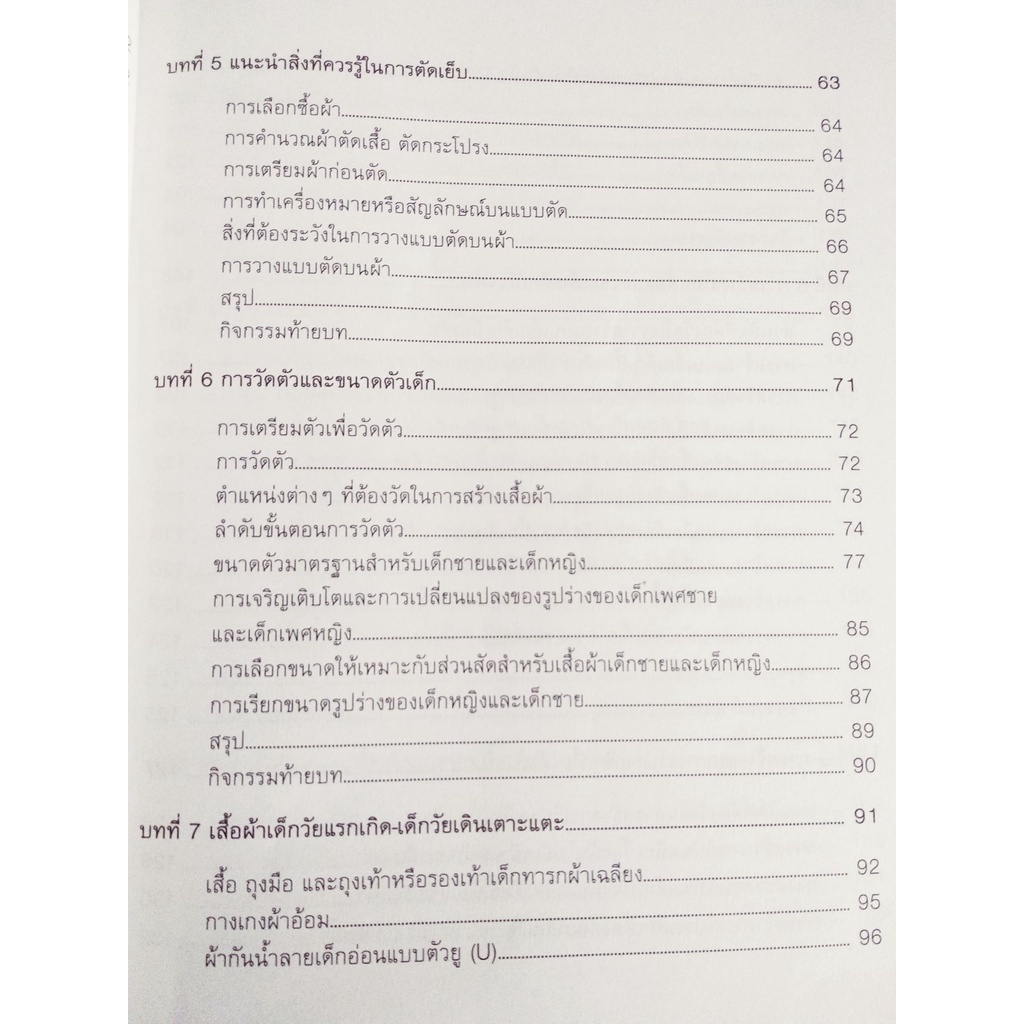 บทที่ 5 แนะนำสิ่งที่ควรรู้ในการตัดเย็บ 63
การเลือกซื้อผ้า 64
การคำนวณผ้าตัดเสื้อ ตัดกระโปรง 64
การเตรียมผ้าก่อนตัด 64
การทำเครื่องหมายหรือสัญลักษณ์บนแบบตัด 65
สิ่งที่ต้องระวังในการวางแบบตัดบนผ้า 66
การวางแบบตัดบนผ้า 67
สรุป 69
กิจกรรมท้ายบท 69
บทที่ 6 การวัดตัวและขนาดตัวเด็ก 71
การเตรียมตัวเพื่อวัดตัว 72
การวัดตัว 72
ตำแหน่งต่างๆ ที่ต้องวัดในการสร้างเสื้อผ้า 73
ลำดับขั้นตอนการวัดตัว 74
ขนาดตัวมาตรฐานสำหรับเด็กชายและเด็กหญิง 77
การเจริญเติบโตและการเปลี่ยนแปลงของรูปร่างของเด็กเพศชาย
และเด็กเพศหญิง 85
การเลือกขนาดให้เหมาะกับส่วนสัดสำหรับเสื้อผ้าเด็กชายและเด็กหญิง 86
การเรียกขนาดรูปร่างของเด็กหญิงและเด็กชาย 87
สรุป 89
กิจกรรมท้ายบท 90
บทที่ 7 เสื้อผ้าเด็กวัยแรกเกิด-เด็กวัยเดินเตาะแตะ 91
เสื้อ ถุงมือ และถุงเท้าหรือรองเท้าเด็กทารกผ้าเฉลียง 92
กางเกงผ้าอ้อม 95
ผ้ากันน้ำลายเด็กอ่อนแบบตัวยู (U) 96